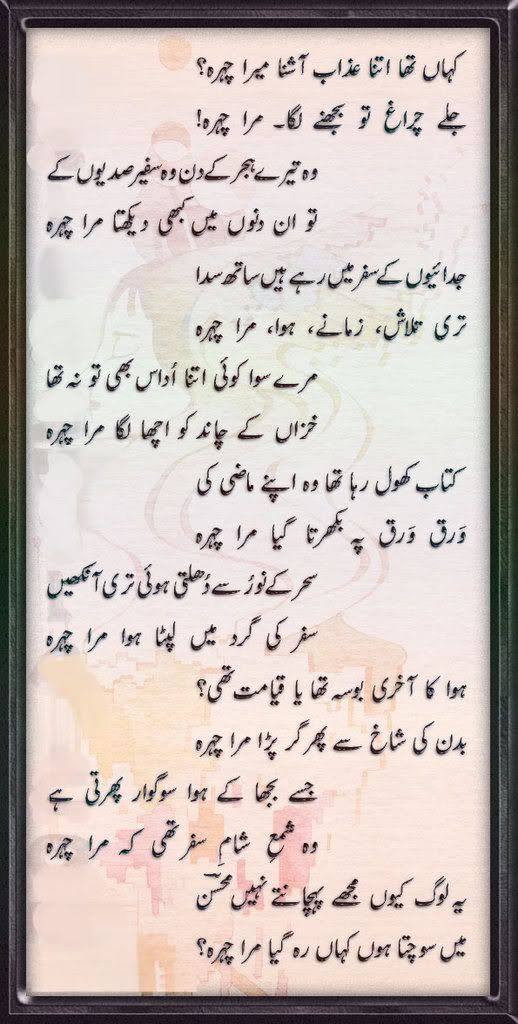 کہاں تھا اتنا عذاب آشنا میرا چہرہ؟
جلے چراغ تو بجھنے لگا۔ مرا چہرہ!
وہ تیرے ہجر کے دن وہ سفیر صدیوں کے
تو ان دنوں میں کبھی دیکھتا مرا چہرہ
جدائیوں کے سفر میں رہے ہیں ساتھ سدا
تری تلاش، زمانے، ہوا، مرا چہرہ
مرے سوا کوئی اتنا اُداس بھی تو نہ تھا
خزاں کے چاند کو اچھا لگا مرا چہرہ
کتاب کھول رہا تھا وہ اپنے ماضی کی
وَرق وَرق پہ بکھرتا گیا مرا چہرہ
سحر کے نورُ سے دُھلتی ہوئی تری آنکھیں
سفر کی گرد میں لپٹا ہوا مرا چہرہ
ہوا کا آخری بوسہ تھا یا قیامت تھی؟
بدن کی شاخ سے پھر گر پڑا مرا چہرہ
جسے بجھا کے ہوا سوگوار پھرتی ہے
وہ شمعِ شامِ سفر تھی کہ مرا چہرہ
یہ لوگ کیوں مجھے پہچانتے نہیں محسنؔ
میں سوچتا ہوں کہاں رہ گیا مرا چہرہ؟